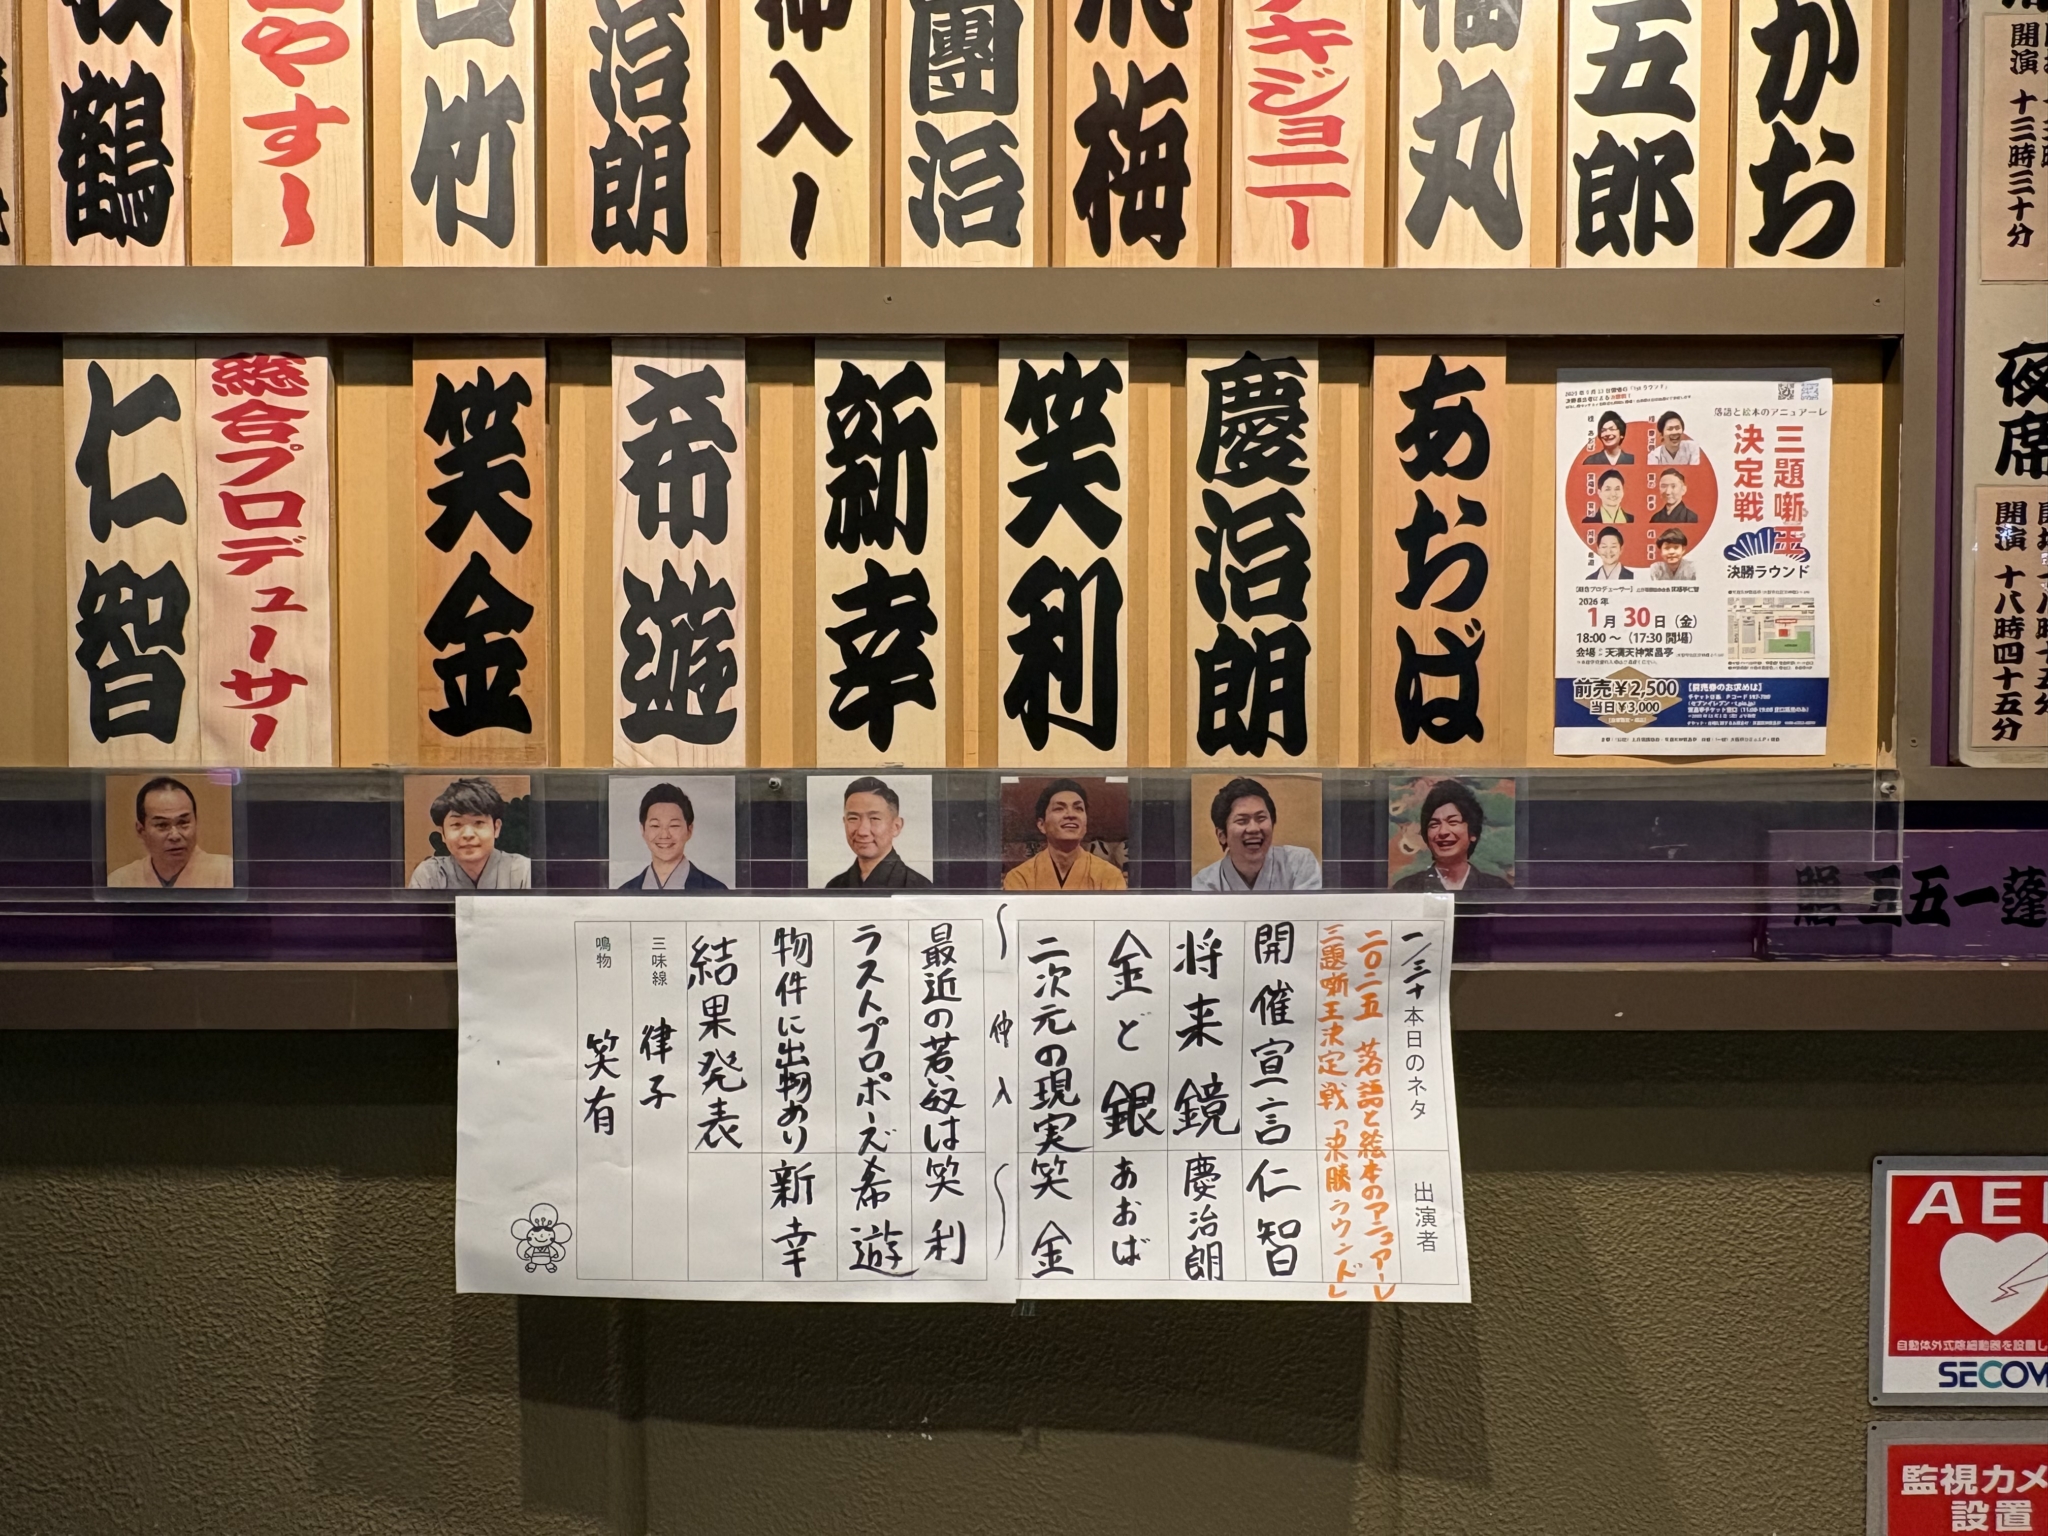 かお
五郎
福丸
キジョニー
飛梅
團治
仲入り
治朗
竹
やすし
鶴
開演 十三時三十分
夜席
開演 十八時四十五分
あおば
慶治朗
笑利
新幸
希遊
笑金
総合プロデューサー
仁智
落語と絵本のアニュアーレ
三題噺王
決定戦
決勝ラウンド
2026年
1月30日(金)
18:00〜(17:30開場)
会場 天満天神繁昌亭
前売¥2,500
当日¥3,000
【前売券のお求めは】
三五一蓬
一/三十 本日のネタ 出演者
二〇二五 落語と絵本のアニュアーレ
三題噺王決定戦「決勝ラウンド」
開催宣言 仁智
将来鏡 慶治朗
金と銀 あおば
二次元の現実 笑金
仲入
最近の若い奴は 笑利
ラストプロポーズ 希遊
物件に出物あり 新幸
結果発表
三味線 律子
鳴物 笑有
AE
自動体外式除細動器を設置し
SECOM
監視カメ
設置